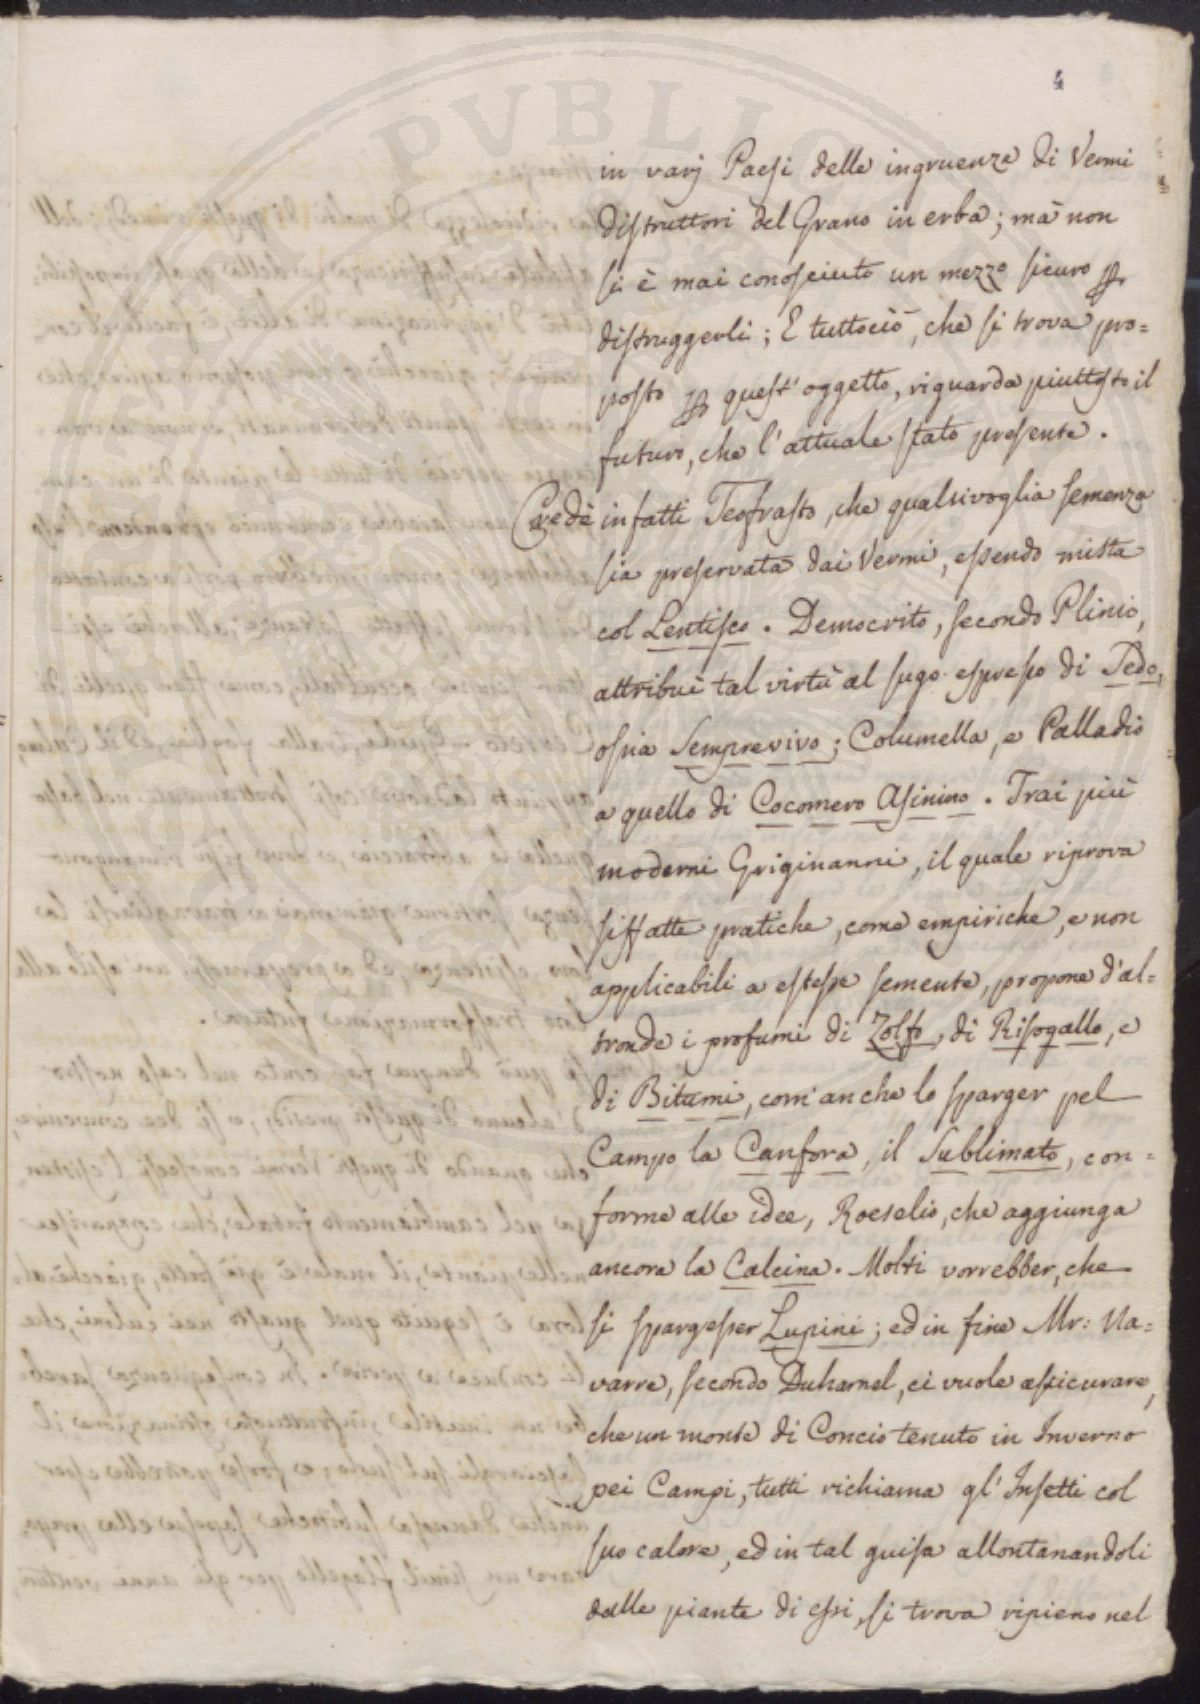 4
in varj Paesi delle ingruenze di Vermi
distruttori del Grano in erba; mà non
si è mai conosciuto un mezzo sicuro ꝑ
distruggerli; E tuttociò, che si trova pro=
posto ꝑ quest' oggetto, riguarda piuttosto il
futuro, che l' attuale stato presente.
Crede infatti Teofrasto, che qualsivoglia semenza
sia preservata dai Vermi, essendo mista
col Lentisco. Democrito, secondo Plinio,
attribuì tal virtù al sugo espresso di Sedo,
ossia Semprevivo; Columella, e Palladio
a quello di Cocomero Asinino. Trai più
moderni Griginanni, il quale riprova
siffatte pratiche, come empiriche, e non
applicabili a estese semente, propone d'al=
tronde i profumi di Zolfo, di Risogallo, e
di Bitumi, com' anche lo sparger pel
Campo la Canfora, il Sublimato, con=
forme alle idee, Roeselio, che aggiunga
ancora la Calcina. Molti vorrebber, che
si spargesser Lupini; ed in fine Mr: Na=
varre, secondo Duhamel, ci vuole assicurare,
che un monte di Concio tenuto in Inverno
pei Campi, tutti richiama gl' Insetti col
suo calore, ed in tal guisa allontanandoli
dalle piante di essi, si trova ripieno nel